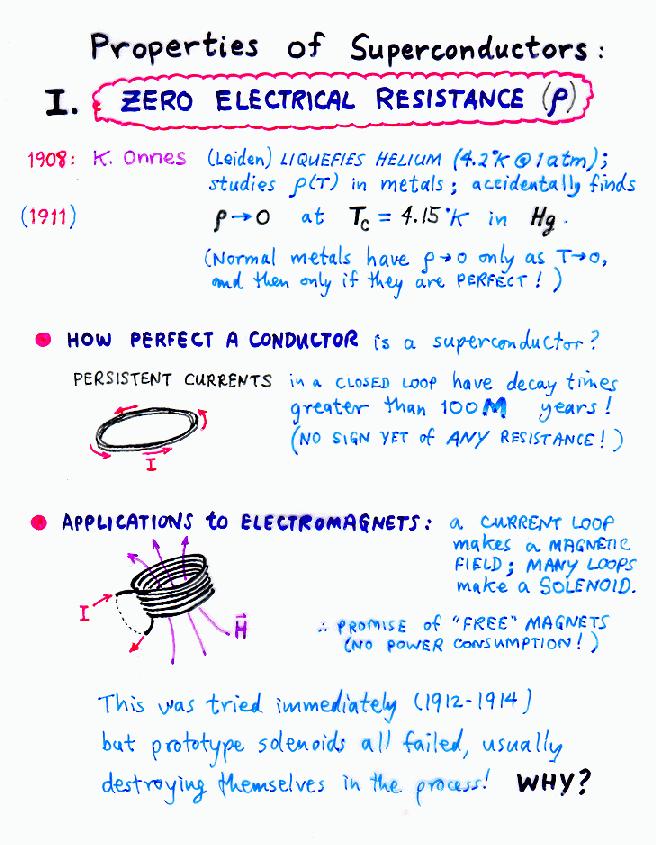 Properties of Superconductors:
I. ZERO ELECTRICAL RESISTANCE (ρ)
1908: K. Onnes (Leiden) LIQUEFIES HELIUM (4.2°K @ 1 atm);
studies ρ(T) in metals; accidentally finds
(1911) ρ→0 at Tc = 4.15°K in Hg.
(Normal metals have ρ→0 only as T→0,
and then only if they are PERFECT!)
● HOW PERFECT A CONDUCTOR is a superconductor?
PERSISTENT CURRENTS in a CLOSED LOOP have decay times
greater than 100M years!
(NO SIGN YET of ANY RESISTANCE!)
I
● APPLICATIONS to ELECTROMAGNETS: a CURRENT LOOP
makes a MAGNETIC
FIELD; MANY LOOPS
make a SOLENOID.
I
H⃗
∴ PROMISE of "FREE" MAGNETS
(NO POWER CONSUMPTION!)
This was tried immediately (1912-1914)
but prototype solenoids all failed, usually
destroying themselves in the process! WHY?